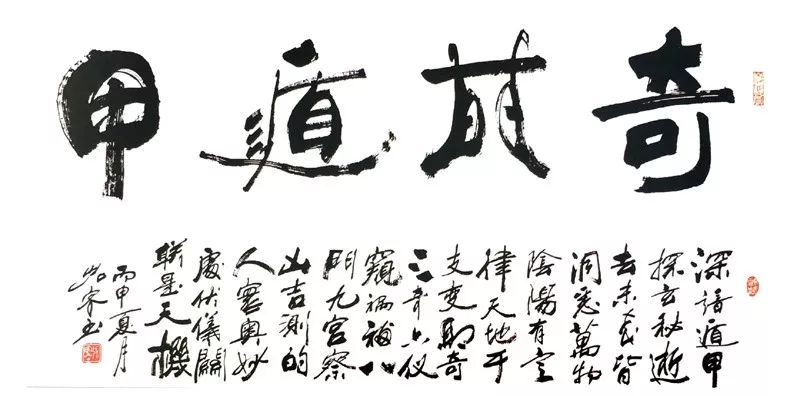 奇門遁甲
深諳遁甲
探玄秘逝
去未来皆
洞悉萬物
陰陽有定
律天地干
支變耶奇
三奇六仪
窺禍福八
門九宫察
凶吉測的
人寰奥妙
處伏儀闢
是天機
丙申夏月
书